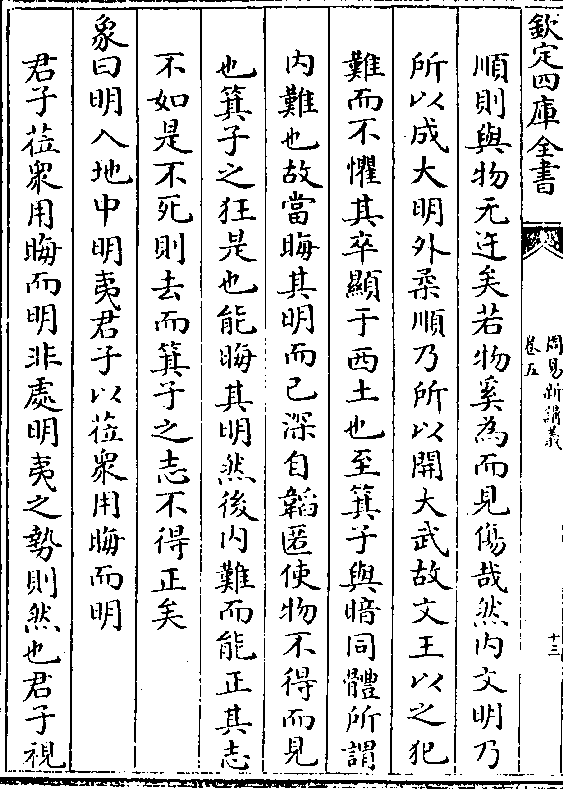 欽定四庫全書
周易新講義
卷五
十三
順則與物无迕矣若物奚為而見傷哉然内文明乃
所以成大明外柔順乃所以開大武故文王以之犯
難而不懼其卒顯于西土也至箕子與暗同體所謂
内難也故當晦其明而已深自韜匿使物不得而見
也箕子之狂是也能晦其明然後内難而能正其志
不如是不死則去而箕子之志不得正矣
象曰明入地中明夷君子以莅衆用晦而明
君子莅衆用晦而明非處明夷之勢則然也君子視